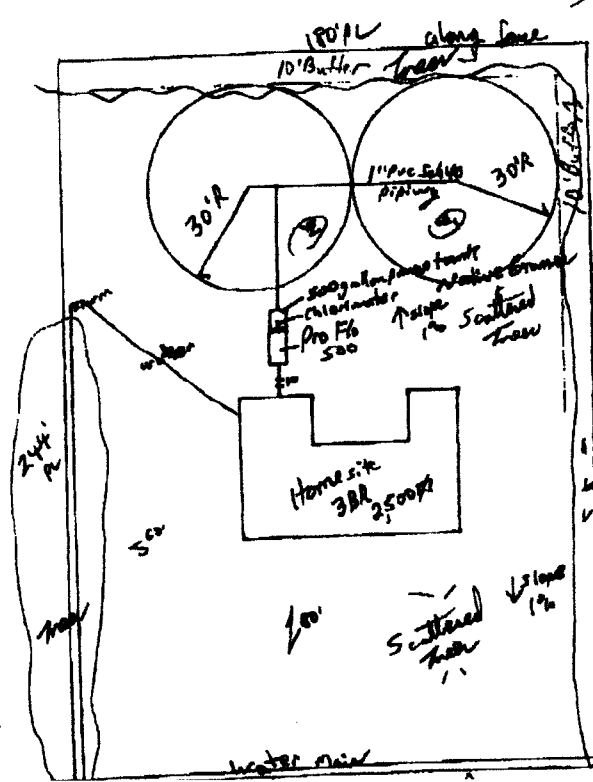 180' PL along fence
10' Buffer Trees
10' Buffer
30'R
1" PVC Sch 40
piping
30'R
500 gallon pump tank
Chlorinator
Pro Flo
500
Native Grasses
↑ slope
1%
Scattered
Trees
water
244'
PL
Home site
3BR
2,500
60'
80'
Trees
Scattered
Trees
↓ Slope
1%
Water Main